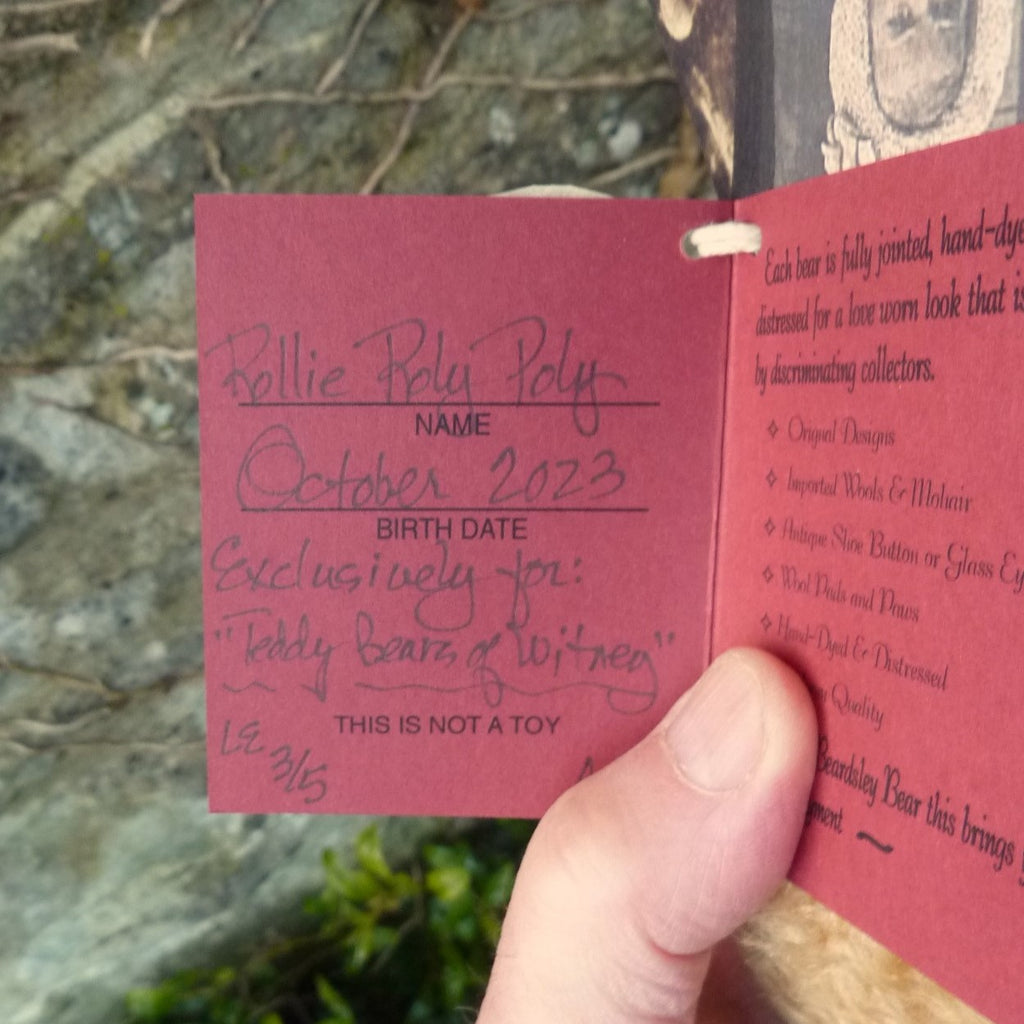 Rollie Roly Poly
NAME
October 2023
BIRTH DATE
Exclusively for:
"Teddy Bears of Witney"
THIS IS NOT A TOY
LE
3/5
Each bear is fully jointed, hand-dye
distressed for a love worn look that is
by discriminating collectors.
Original Designs
Imported Wools & Mohair
Antique Shoe Button or Glass Ey
Wool Pads and Paws
Hand-Dyed & Distressed
Quality
Beardsley Bear this brings
ment ~